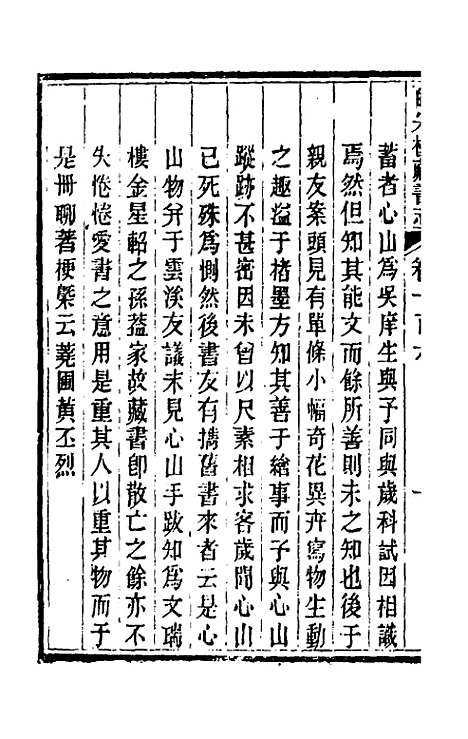 皕宋樓藏書志 卷一百六 一
蓄者心山爲吳庠生與予同與歲科試因相識
焉然但知其能文而餘所善則未之知也後于
親友案頭見有單條小幅奇花異卉寫物生動
之趣溢于楮墨方知其善于繪事而予與心山
蹤跡不甚密因未曾以尺素相求客歲聞心山
已死殊爲惻然後書友有擕舊書來者云是心
山物弁于雲溪友議未見心山手跋知爲文瑞
樓金星軺之孫葢家故藏書卽散亡之餘亦不
失惓惓愛書之意用是重其人以重其物而于
是冊聊著梗槩云蕘圃黃丕烈